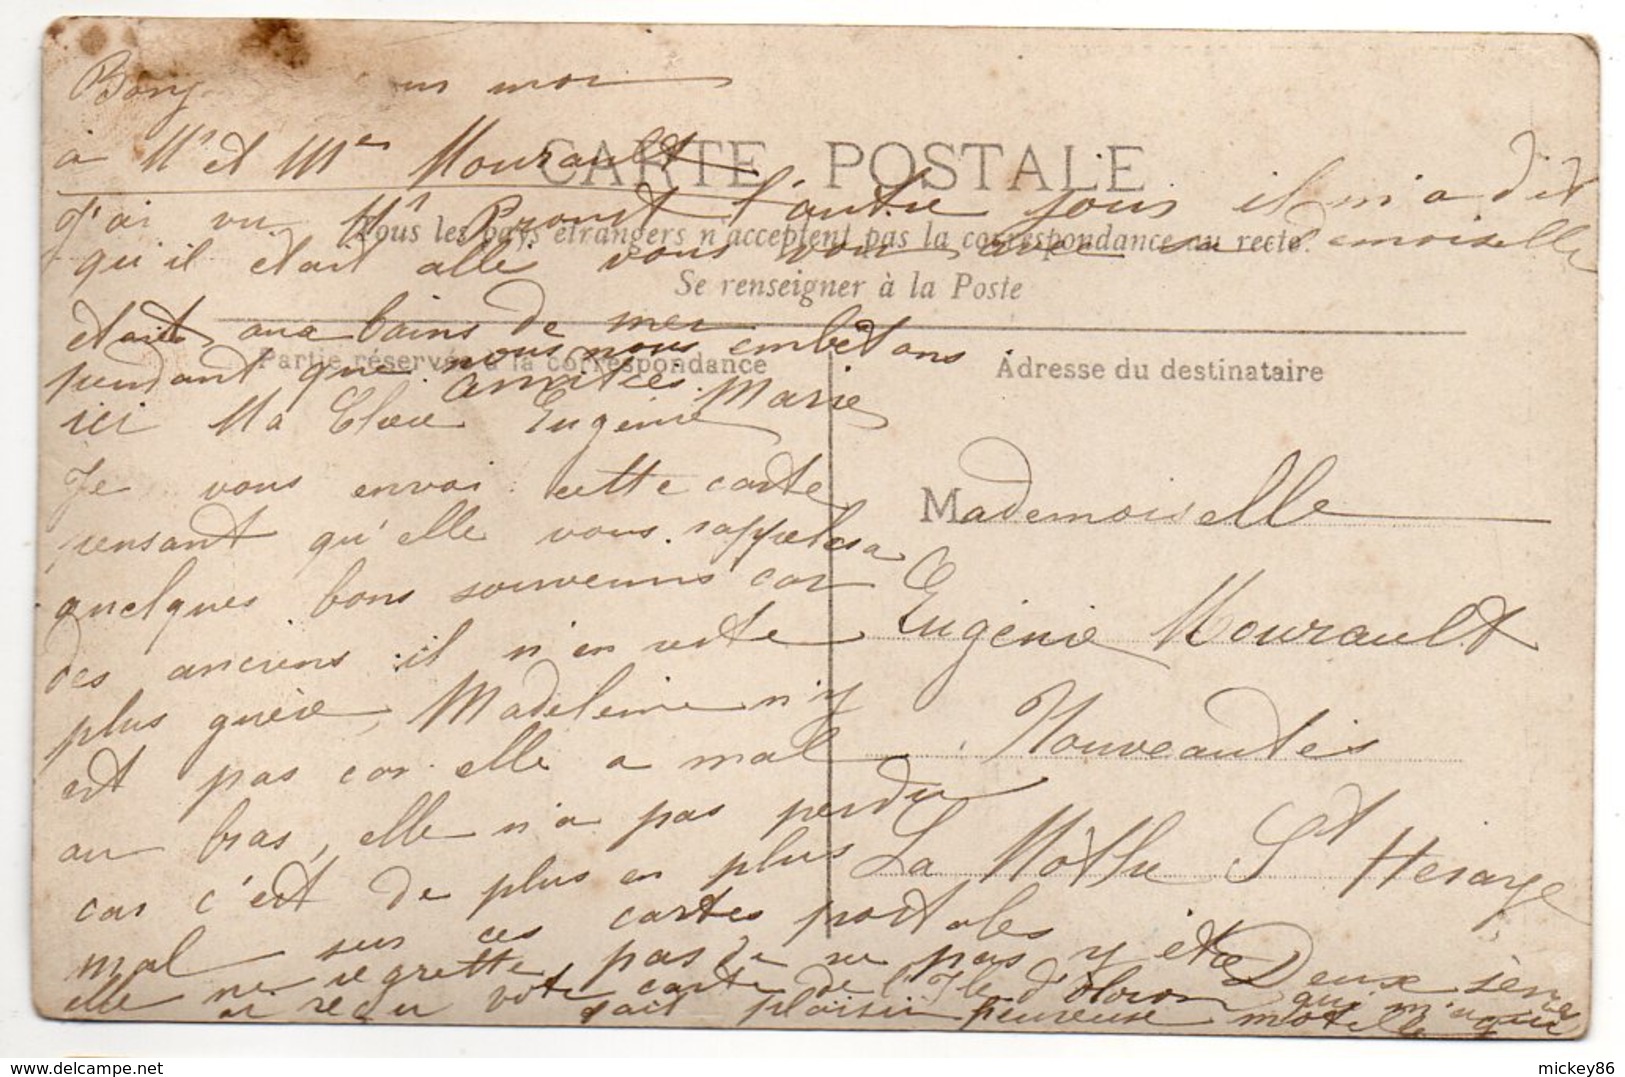 à Mr et Mme Mourault
CARTE POSTALE
J'ai vu Mr Proust l'autre jour il m'a dit
Tous les pays étrangers n'acceptent pas la correspondance au recto.
qu'il etait allé vous voir avec sa demoiselle
Se renseigner à la Poste
etait aux bains de mer
pendant que nous nous embetons
Partie réservée à la correspondance
Adresse du destinataire
ici Ma Chère Eugénie
amitiés Marie
Je vous envoi cette carte
pensant qu'elle vous rappelera
quelques bons souvenirs car
des anciens il n'en reste
plus guère, Madeleine n'y
est pas car elle a mal
au bras, elle n'a pas perdu
car c'est de plus en plus
mal sur ces cartes postales
elle ne regrette pas de ne pas y être
reçu votre carte de l'Ile d'Oloron qui m'a
fait plaisir heureuse
Mademoiselle
Eugénie Mourault
Nouveautés
La Mothe St Heraye
Deux sèvres
mickey86